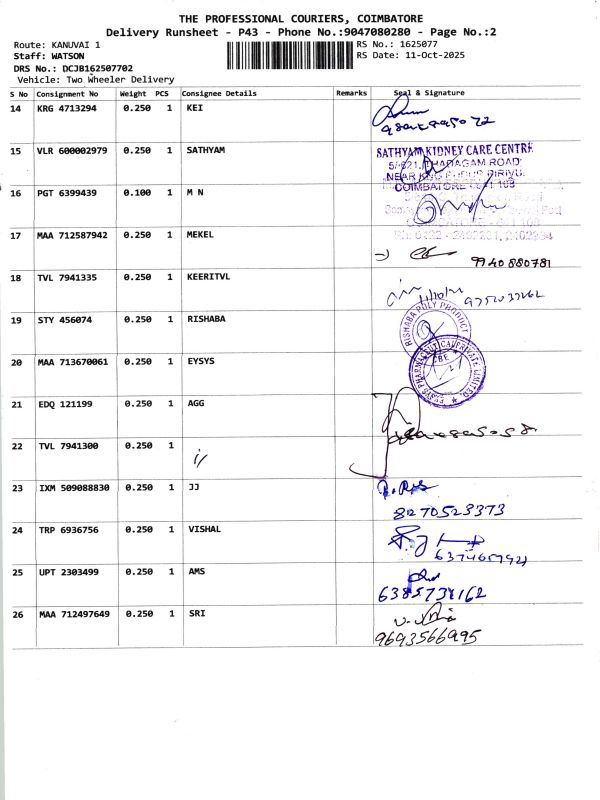 THE PROFESSIONAL COURIERS, COIMBATORE
Delivery Runsheet - P43 - Phone No.:9047080280 - Page No.:2
Route: KANUVAI 1
Staff: WATSON
DRS No.: DCJB162507702
Vehicle: Two Wheeler Delivery
RS No.: 1625077
RS Date: 11-Oct-2025
S No Consignment No Weight PCS Consignee Details Remarks Seal & Signature
14 KRG 4713294 0.250 1 KEI
15 VLR 600002979 0.250 1 SATHYAM SATHYAM KIDNEY CARE CENTRE
THADAGAM ROAD
COIMBATORE
16 PGT 6399439 0.100 1 M N
17 MAA 712587942 0.250 1 MEKEL
9940880781
18 TVL 7941335 0.250 1 KEERITVL
19 STY 456074 0.250 1 RISHABA RISHABA POLY PRODUCT
20 MAA 713670061 0.250 1 EYSYS
21 EDQ 121199 0.250 1 AGG
22 TVL 7941300 0.250 1
23 IXM 509088830 0.250 1 JJ
8270523373
24 TRP 6936756 0.250 1 VISHAL
25 UPT 2303499 0.250 1 AMS
6385731162
26 MAA 712497649 0.250 1 SRI
9693566995